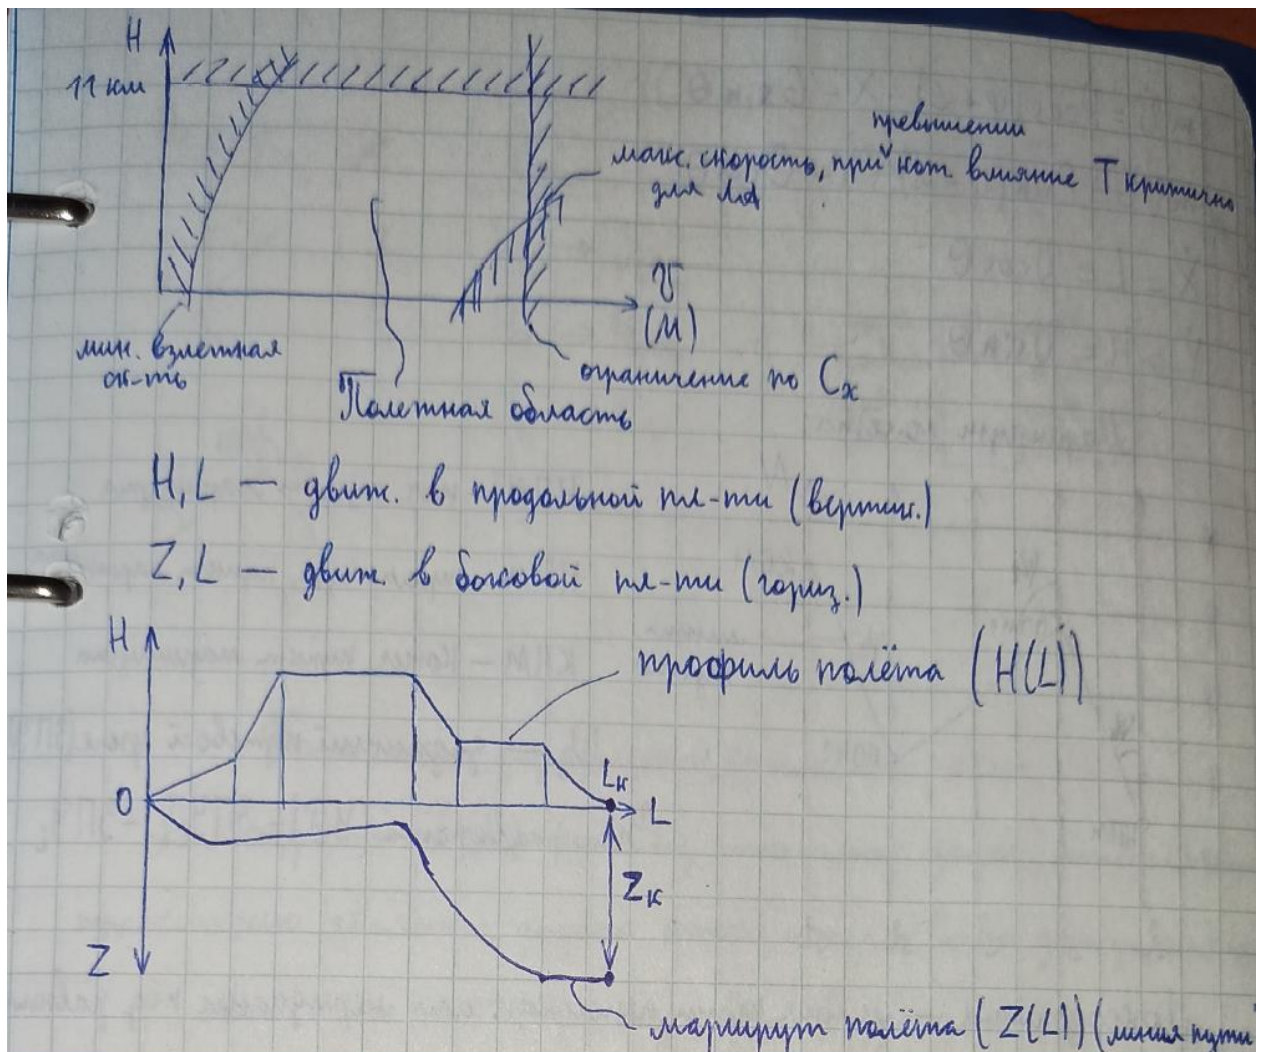 H
11 км
превышении
макс. скорость, при кот. влияние T критично
для ЛА
V
(M)
мин. взлетная
ск-ть
ограничение по Cx
Полетная область
H, L — движ. в продольной пл-ти (вертик.)
Z, L — движ. в боковой пл-ти (гориз.)
H
профиль полёта (H(L))
Lк
0
L
Zк
Z
маршрут полёта (Z(L)) (линия пути